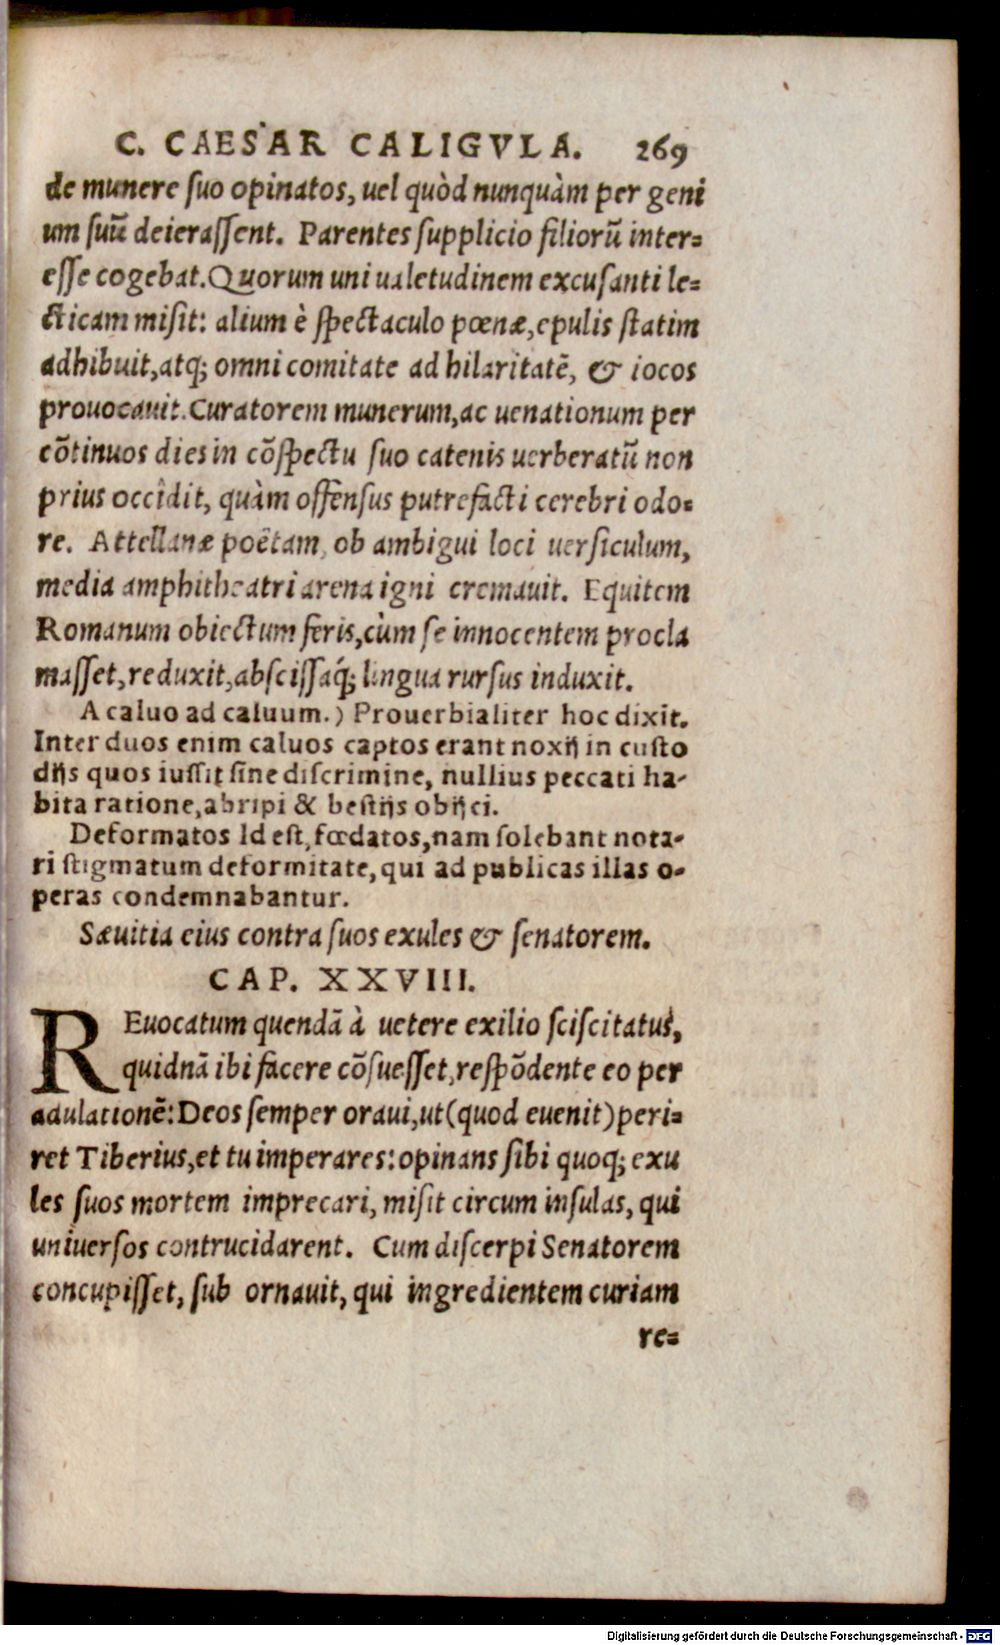 C. CAESAR CALIGVLA. 269
de munere ſuo opinatos, uel quòd nunquàm per geni
um ſuũ deieraſſent. Parentes ſupplicio filiorũ inter=
eſſe cogebat. Quorum uni ualetudinem excuſanti le=
cticam miſit: alium è ſpectaculo pœnæ, epulis ſtatim
adhibuit, atq; omni comitate ad hilaritatẽ, & iocos
prouocauit. Curatorem munerum, ac uenationum per
cõtinuos dies in cõſpectu ſuo catenis uerberatũ non
prius occîdit, quàm offenſus putrefacti cerebri odo=
re. Attellanæ poëtam, ob ambigui loci uerſiculum,
media amphitheatri arena igni cremauit. Equitem
Romanum obiectum feris, cùm ſe innocentem procla
maſſet, reduxit, abſciſſaq́; lingua rurſus induxit.
A caluo ad caluum.) Prouerbialiter hoc dixit.
Inter duos enim caluos captos erant noxij in cuſto
dijs quos iuſſit ſine diſcrimine, nullius peccati ha-
bita ratione, abripi & beſtijs obijci.
Deformatos Id eſt, fœdatos, nam ſolebant nota-
ri ſtigmatum deformitate, qui ad publicas illas o-
peras condemnabantur.
Sæuitia eius contra ſuos exules & ſenatorem.
CAP. XXVIII.
REuocatum quendã à uetere exilio ſciſcitatus,
quidnã ibi facere cõſueſſet, reſpõdente eo per
adulationẽ: Deos ſemper oraui, ut (quod euenit) peri=
ret Tiberius, et tu imperares: opinans ſibi quoq; exu
les ſuos mortem imprecari, miſit circum inſulas, qui
uniuerſos contrucidarent. Cum diſcerpi Senatorem
concupiſſet, ſub ornauit, qui ingredientem curiam
re=
Digitalisierung gefördert durch die Deutsche Forschungsgemeinschaft - DFG